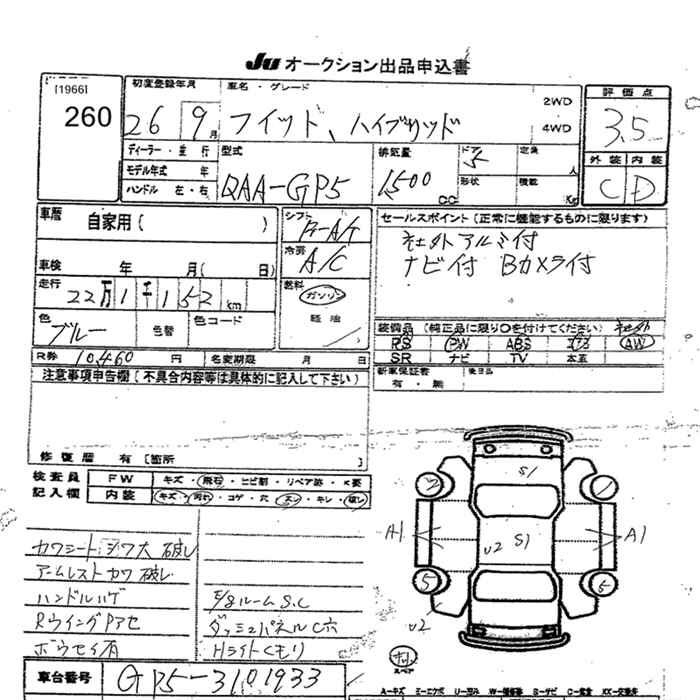 Ju オークション出品申込書
[1966]
260
初度登録年月
26 9月
車名・グレード
フイット、ハイブリッド
2WD
4WD
評価点
3.5
外装 内装
C D
ディーラー・並行
モデル年式 年
ハンドル 左・右
型式
DAA-GP5
排気量
1500 CC
ドア
5
形状
定員
人
積載
Kg
車歴
自家用( )
車検 年 月( 日)
走行
22万1千152 km
色
ブルー
色替
色コード
シフト
F-A/T
冷房
A/C
燃料
ガソリン
軽油
セールスポイント(正常に機能するものに限ります)
社外アルミ付
ナビ付 Bカメラ付
装備品(純正品に限り○を付けてください) 社外
RS PW ABS エアB AW
SR ナビ TV 本革
新車保証書
有・無
後日品
R券 10,460 円
名変期限 月 日
注意事項申告欄(不具合内容等は具体的に記入して下さい)
修復歴 有 [箇所
検査員
記入欄
FW キズ・飛石・ヒビ割・リペア跡・X要
内装 キズ・汚れ・コゲ・穴・スレ・キレ・破レ
カワシートシワ大 破レ
アームレストカワ破レ
ハンドルハゲ
RウイングPアセ
ボウセイ有
F/Sルーム S.C
ダッシュパネルC穴
Hライトくもり
S1
S1
U2
A1
A1
U2
2
1
5
5
スペア
車台番号
GP5-3101933
A-キズ